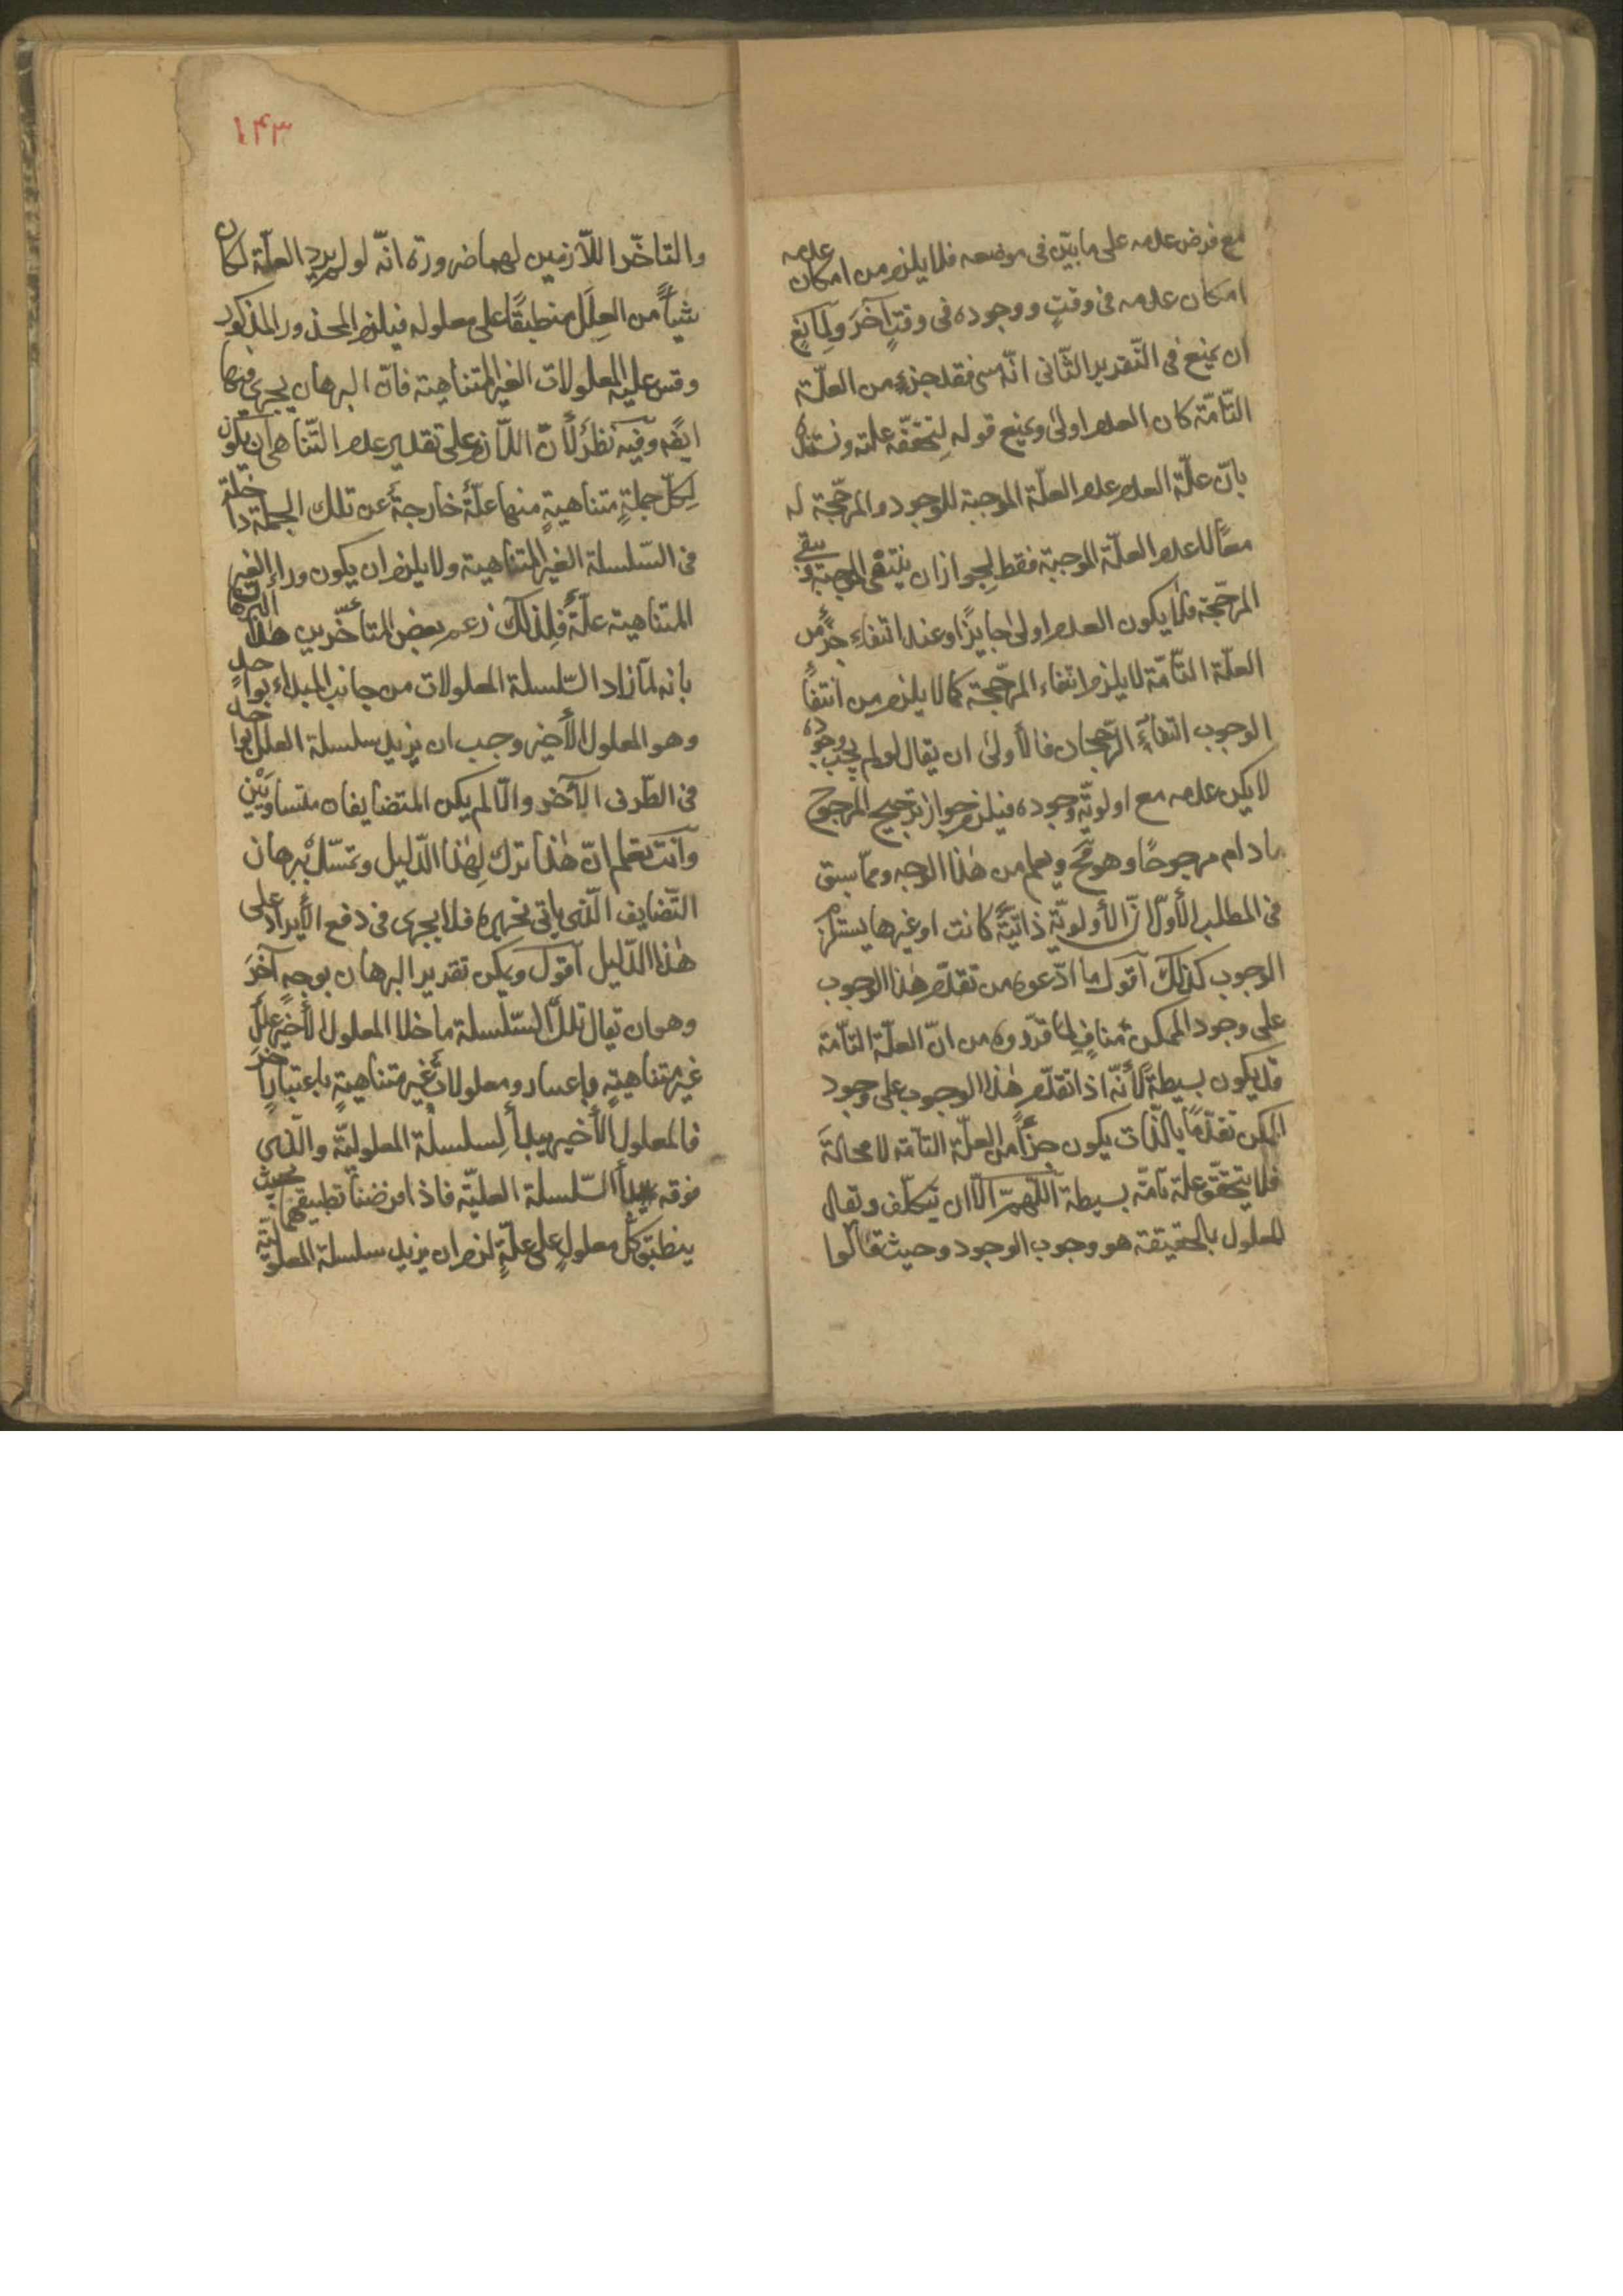 مع فرض علمه على ما بيّن فى موضعه فلا يلزم من امكان عدمه
امكان عدمه فى وقتٍ ووجوده فى وقتٍ آخرَ ولِمانعٍ
ان يمنع فى التّقدير الثّانى انّه متى فقد جزءٍ من العلّة
التّامّة كان العدم اولى ويمنع قوله لِتحقّقه علته ونستند
بانّ علّة العدم عدم العلّة الموجبة للوجود والمرجّحة له
معًا لا عدم العلّة الموجبة فقط لِجواز ان ينتفى الموجبة ويبقى
المرجّحة فلا يكون العدم اولى جايزًا وعند انتفاء جزءٍ من
العلّة التّامّة لا يلزم انتفاء المرجّحة كما لا يلزم من انتفاء
الوجوب انتفاء الرّجحان فالأولى ان يقال لو لم يجب وجوده
لأمكن عدمه مع اولويّة وجوده فيلزم جواز ترجيح المرجوح
ما دام مرجوحًا وهو مح ويعلم من هٰذا الوجه وممّا سبق
فى المطلب الأوّل انّ الأولويّة ذاتيّةً كانت او غيرها يستلزم
الوجوب كذلك اقول ما ادّعوه من تقدّم هٰذا الوجوب
على وجود الممكن منافٍ لِما قرّروه من انّ العلّة التامّة
قد يكون بسيطةً لأنّه اذا تقدّم هٰذا الوجوب على وجود
الممكن تقدّمًا بالذّات يكون جزأً من العلّة التامّة لا محالةَ
فلا يتحقّق علّة تامّة بسيطة اللّهمّ الّا ان يتكلّف ويقال
المعلول بالحقيقة هو وجوب الوجود وحيث قالوا
١۴٣
والتاخّر اللّازمين لهما ضرورة انّه لو لم يرد العلّة لكان
شيأً من العِلَل منطبقًا على معلوله فيلزم المحذور المذكور
وقس عليه المعلولات الغير المتناهية فانّ البرهان يجرى فيها
ايضًه وفيه نظرٌ لأنّ اللّازم على تقدير عدم التّناهى ان يكون
لِكلّ جملةٍ متناهيةٍ منها علّةٌ خارجةٌ عن تلك الجملة داخلة
فى السّلسلة الغير المتناهية ولا يلزم ان يكون وراء الغير
المتناهية علّةٌ فلِذلك زعم بعض المتأخّرين هٰذا
بانه لمّا زاد السّلسلة المعلولات من جانب المبداء بواحدٍ
وهو المعلول الأخير وجب ان يزيد سلسلة العلل بواحد
فى الطّرف الآخر والّا لم يكن المتضايفان متساويَيْن
وانت تعلم انّ هٰذا ترك لِهٰذا الدّليل وتمسّك بْبرهان
التّضايف الّذى ياتى تحريره فلا يجرى فى دفع الأيراد على
هٰذا الدّليل اقول ويمكن تقدير البرهان بوجهٍ آخرَ
وهو ان يقال تلك السّلسلة ما خلا المعلول الأخير علل
غير متناهيةٍ باعتبار ومعلولات غير متناهيةٍ باعتبار اخر
فالمعلول الأخير مبدأ لِسلسلة المعلوليّة والّذى
فوقه مبدأ السّلسلة العليّة فاذا فرضنا تطبيقهما بحيث
ينطبق كلّ معلولٍ على علّةٍ لزم ان يزيد سلسلة المعلوليّة